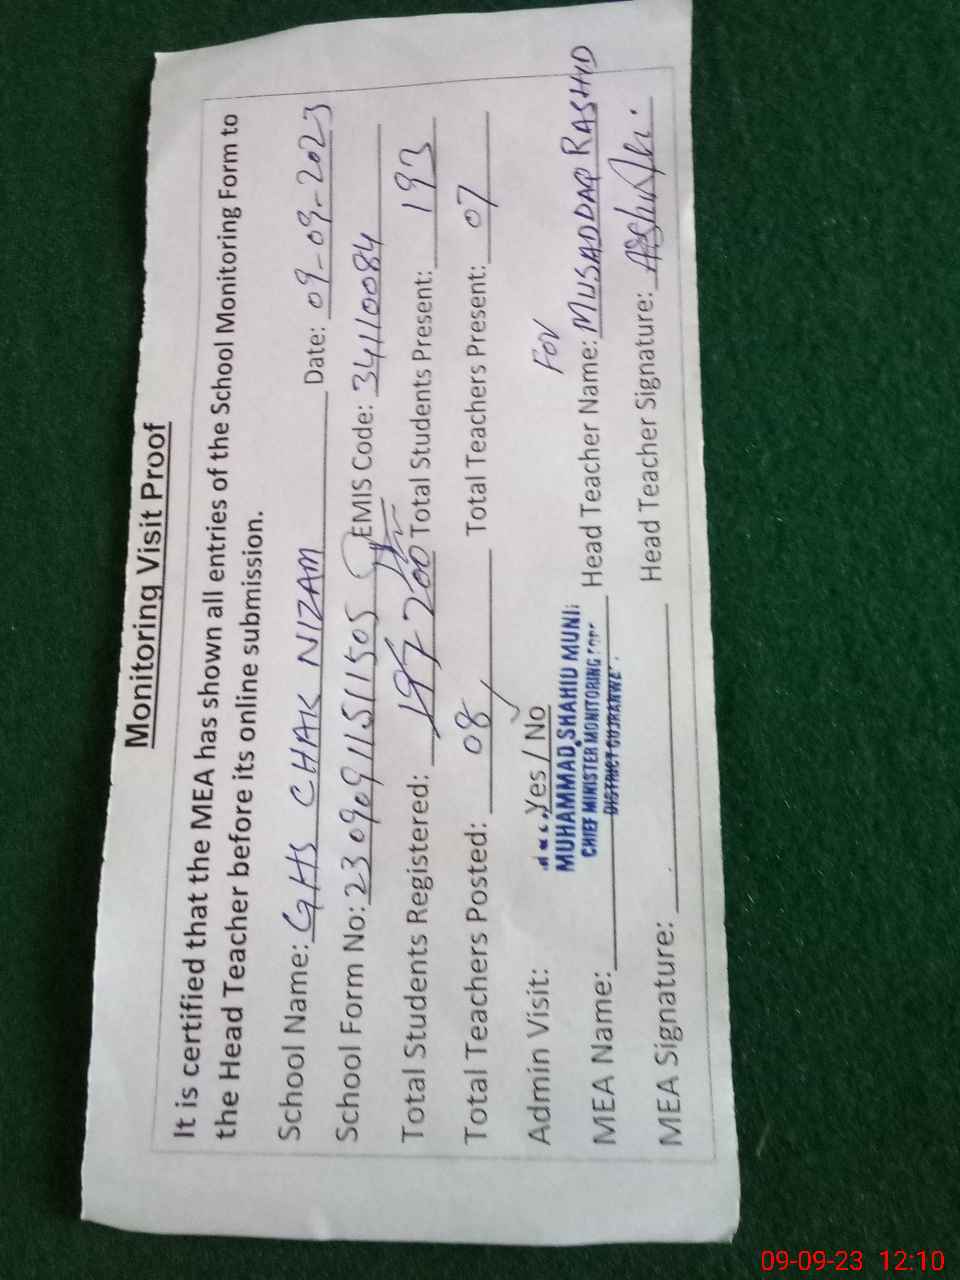 Monitoring Visit Proof
It is certified that the MEA has shown all entries of the School Monitoring Form to
the Head Teacher before its online submission.
School Name: GHS CHAK NIZAM Date: 09-09-2023
School Form No: 23090911511505 EMIS Code: 34110084
Total Students Registered: 197 200 Total Students Present: 193
Total Teachers Posted: 08 Total Teachers Present: 07
Admin Visit: Yes / No
For
MUHAMMAD SHAHID MUNI
CHIEF MINISTER MONITORING
DISTRICT GUJRANWA
MEA Name: Head Teacher Name: MUSADDAQ RASHID
MEA Signature: Head Teacher Signature:
09-09-23 12:10